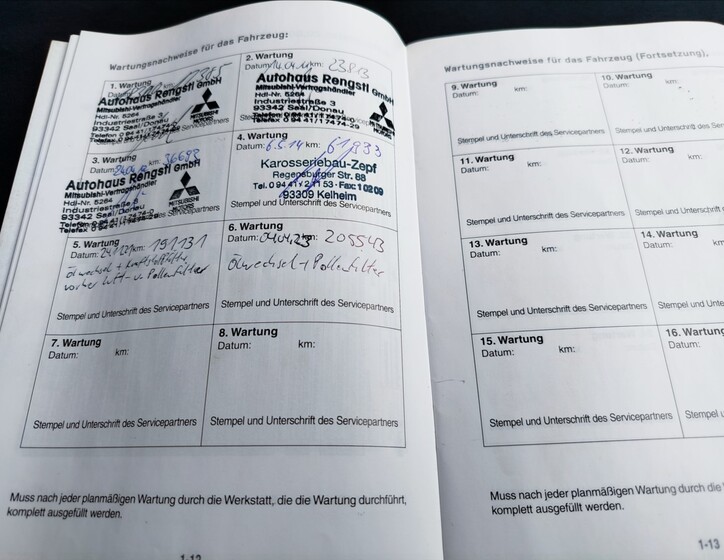 Wartungsnachweise für das Fahrzeug:
1. Wartung
Datum: km:
Autohaus Rengstl GmbH
Mitsubishi-Vertragshändler
Hdl-Nr. 5264
Industriestraße 3
93342 Saal/Donau
MITSUBISHI
MOTORS
2. Wartung
Datum: km: 23813
Autohaus Rengstl GmbH
Mitsubishi-Vertragshändler
Hdl-Nr. 5264
Industriestraße 3
93342 Saal/Donau
Telefax 0 94 41/17474-29
MITSUBISHI
MOTORS
3. Wartung
Datum: km: 36698
Autohaus Rengstl GmbH
Mitsubishi-Vertragshändler
Hdl-Nr. 5264
Industriestraße 3
93342 Saal/Donau
MITSUBISHI
MOTORS
4. Wartung
Datum: 6.5.14 km: 61933
Karosseriebau-Zepf
Regensburger Str. 88
93309 Kelheim
Stempel und Unterschrift des Servicepartners
5. Wartung
Datum: km: 191131
Ölwechsel + Kraftstofffilter,
vorher Luft- u. Pollenfilter
Stempel und Unterschrift des Servicepartners
6. Wartung
Datum: 04.04.23 km: 205543
Ölwechsel + Pollenfilter
Stempel und Unterschrift des Servicepartners
7. Wartung
Datum: km:
Stempel und Unterschrift des Servicepartners
8. Wartung
Datum: km:
Stempel und Unterschrift des Servicepartners
Muss nach jeder planmäßigen Wartung durch die Werkstatt, die die Wartung durchführt,
komplett ausgefüllt werden.
Wartungsnachweise für das Fahrzeug (Fortsetzung),
9. Wartung
Datum: km:
Stempel und Unterschrift des Servicepartners
10. Wartung
Datum:
Stempel und Unterschrift des Ser
11. Wartung
Datum: km:
Stempel und Unterschrift des Servicepartners
12. Wartung
Datum:
Stempel und Unterschrift des
13. Wartung
Datum: km:
Stempel und Unterschrift des Servicepartners
14. Wartung
Datum:
Stempel und Unte
15. Wartung
Datum: km:
Stempel und Unterschrift des Servicepartners
16. Wartung
Datum:
Stempel und
Muss nach jeder planmäßigen Wartung durch die
komplett ausgefüllt werden.
1-13